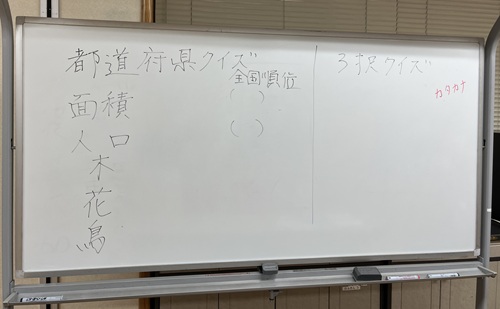 都道府県クイズ
全国順位
面積 ( )
人口 ( )
木
花
鳥
3択クイズ
カタカナ